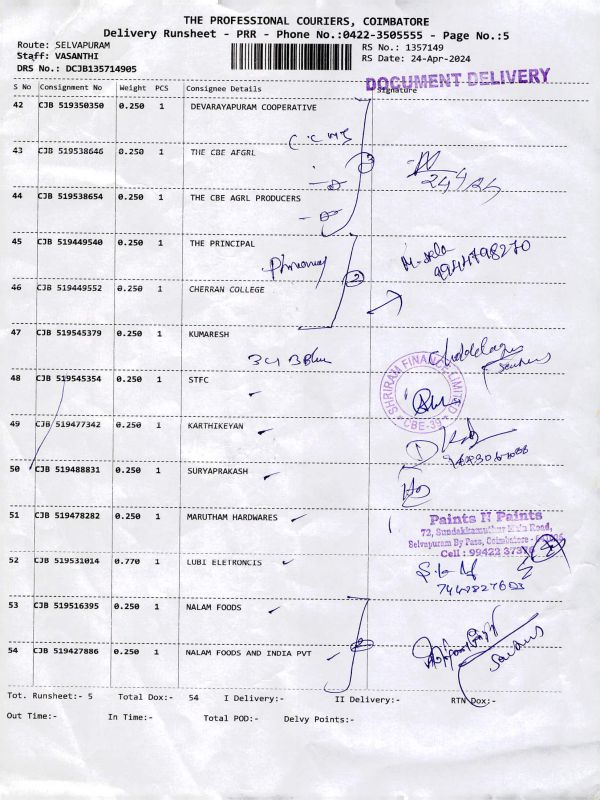 THE PROFESSIONAL COURIERS, COIMBATORE
Delivery Runsheet - PRR - Phone No.:0422-3505555 - Page No.:5
Route: SELVAPURAM RS No.: 1357149
Staff: VASANTHI RS Date: 24-Apr-2024
DRS No.: DCJB135714905
DOCUMENT DELIVERY
S No Consignment No Weight PCS Consignee Details Signature
42 CJB 519350350 0.250 1 DEVARAYAPURAM COOPERATIVE
43 CJB 519538646 0.250 1 THE CBE AFGRL
3
24/4/24
44 CJB 519538654 0.250 1 THE CBE AGRL PRODUCERS
45 CJB 519449540 0.250 1 THE PRINCIPAL
9944798270
46 CJB 519449552 0.250 1 CHERRAN COLLEGE
2
47 CJB 519545379 0.250 1 KUMARESH
48 CJB 519545354 0.250 1 STFC
SHRIRAM FINANCE LIMITED
CBE-39
49 CJB 519477342 0.250 1 KARTHIKEYAN
50 CJB 519488831 0.250 1 SURYAPRAKASH
51 CJB 519478282 0.250 1 MARUTHAM HARDWARES
Paints N Paints
72, Sundakkamuthur Main Road,
Selvapuram By Pass, Coimbatore -
Cell : 99422
52 CJB 519531014 0.770 1 LUBI ELETRONCIS
53 CJB 519516395 0.250 1 NALAM FOODS
54 CJB 519427886 0.250 1 NALAM FOODS AND INDIA PVT
Tot. Runsheet:- 5 Total Dox:- 54 I Delivery:- II Delivery:- RTN Dox:-
Out Time:- In Time:- Total POD:- Delvy Points:-